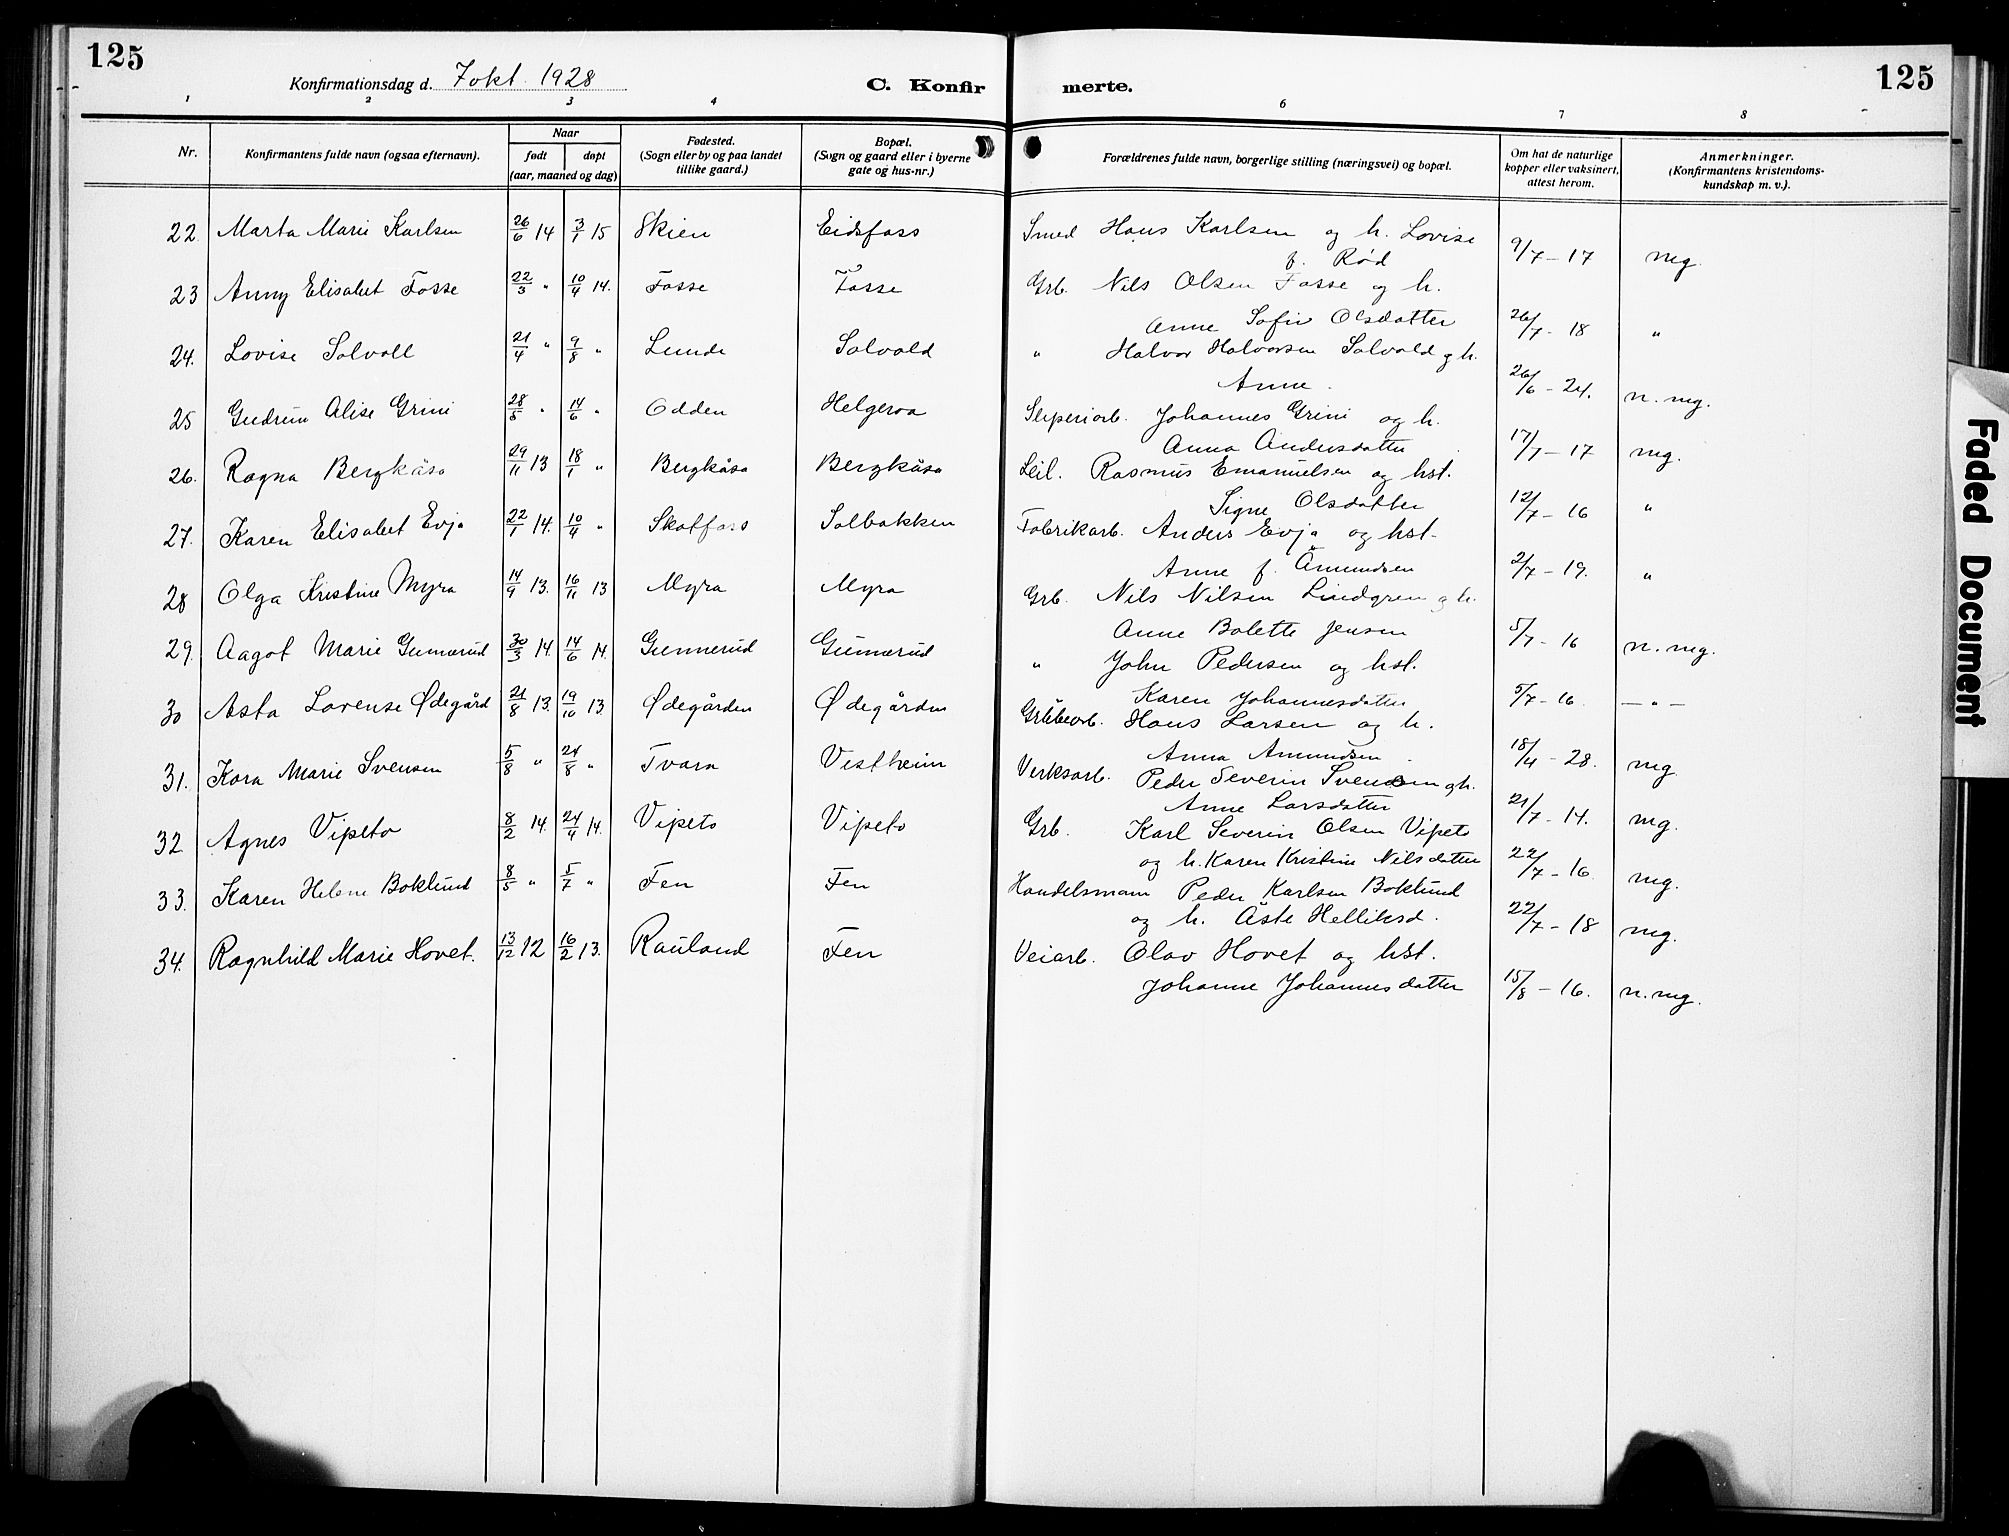 125
Konfirmationsdag d. 7 okt. 1928
C. Konfir
merte.
125
1 2 3 4 6 7 8
Nr.
Konfirmantens fulde navn (ogsaa efternavn).
Naar
født døpt
(aar, maaned og dag)
Fødested.
(Sogn eller by og paa landet
tillike gaard.)
Bopæl.
(Sogn og gaard eller i byerne
gate og hus-nr.)
Forældrenes fulde navn, borgerlige stilling (næringsvei) og bopæl.
Om hat de naturlige
kopper eller vaksinert,
attest herom.
Anmerkninger.
(Konfirmantens kristendoms-
kundskap m. v.).
22. Marta Marie Karlsen 26/6 14 3/1 15 Skien Eidsfoss Smed Hans Karlsen og h. Lovise
f. Rød 9/7 - 17 mg.
23 Anny Elisabet Fosse 22/3 " 10/4 14. Fosse Fosse Grb. Nils Olsen Fosse og h.
Anne Sofie Olsdatter 26/7 - 18 "
24. Lovise Solvoll 21/4 " 9/8 " Lunde Solvold " Halvor Halvorsen Solvold og h.
Anne. 26/6 - 24. n. mg.
25 Gudrun Alise Grini 28/5 " 14/6 " Odden Helgeroa Sliperiarb. Johannes Grini og h.
Anna Andersdatter 17/7 - 17 mg.
26. Ragna Bergkåsa 29/11 13 18/1 " Bergkåsa Bergkåsa Leil. Rasmus Emanuelsen og hst.
Signe Olsdatter 12/7 - 16 "
27. Karen Elisabet Evja 22/1 14. 10/4 " Skotfoss Solbakken Fabrikarb. Anders Evja og hst.
Anne f. Åmundsen 2/7 - 19. "
28 Olga Kristine Myra 14/9 13. 16/11 13 Myra Myra Grb. Nils Nilsen Lindgren og h.
Anne Bolette Jensen 5/7 - 16 n. mg.
29. Aagot Marie Gunnerud 30/3 14. 14/6 14. Gunnerud Gunnerud " John Pedersen og hst.
Karen Johannesdatter 5/7 - 16. — " —
30 Asta Lovense Ødegård 21/8 13. 19/10 13. Ødegården Ødegården Grubearb. Hans Larsen og h.
Anna Amundsen. 18/4 - 28. mg
31. Kara Marie Svensen 5/8 " 24/8 " Tvara Vestheim Verksarb. Peder Severin Svendsen og h.
Anne Larsdatter 21/7 - 14. mg.
32 Agnes Vipeto 8/2 14. 24/4 14. Vipeto Vipeto Grb. Karl Severin Olsen Vipeto
og h. Karen Kristine Nilsdatter 22/7 - 16. mg.
33. Karen Helene Boklund 8/5 " 5/7 " Fen Fen Handelsmann Peder Karlsen Boklund
og h. Åste Helliksd. 22/7 - 18 mg.
34. Ragnhild Marie Hovet. 13/12 12 16/2 13. Rauland Fen Veiarb. Olav Hovet og hst.
Johanne Johannesdatter 15/8 - 16. n. mg.
Faded Document